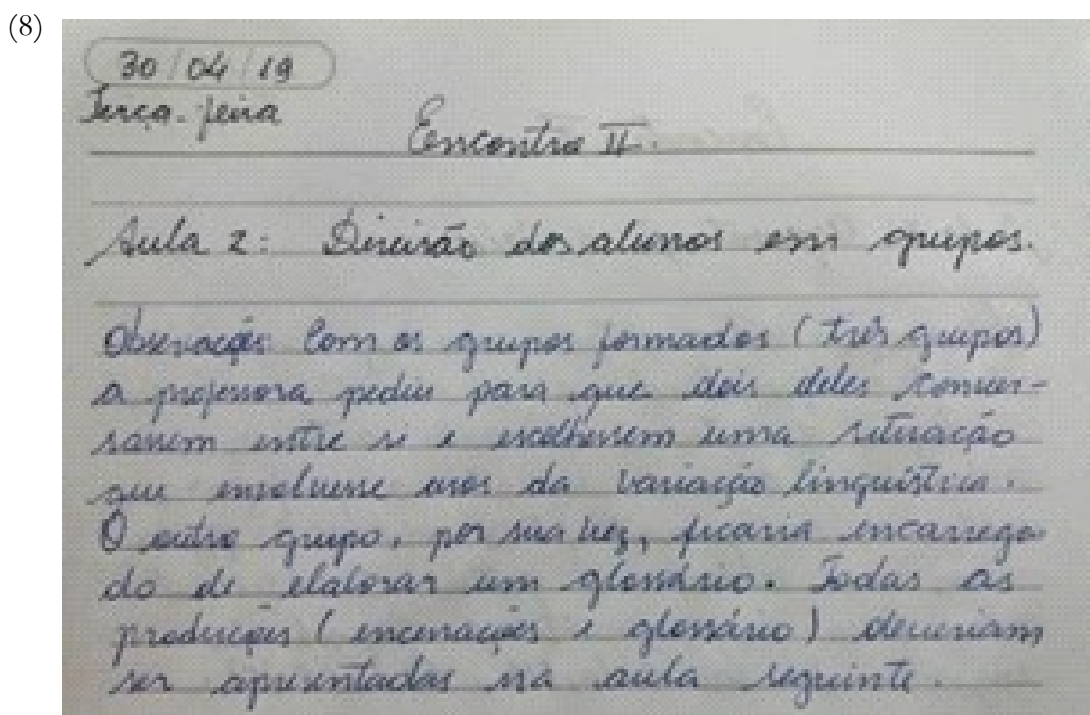 (8)
30/04/19
Terça-feira
Encontro II.
Aula 2: Divisão dos alunos em grupos.
Observação: Com os grupos formados (três grupos)
a professora pediu para que dois deles conver-
sassem entre si e escolhessem uma situação
que envolvesse usos da variação linguística.
O outro grupo, por sua vez, ficaria encarrega-
do de elaborar um glossário. Todas as
produções (encenações e glossário) deveriam
ser apresentadas na aula seguinte.